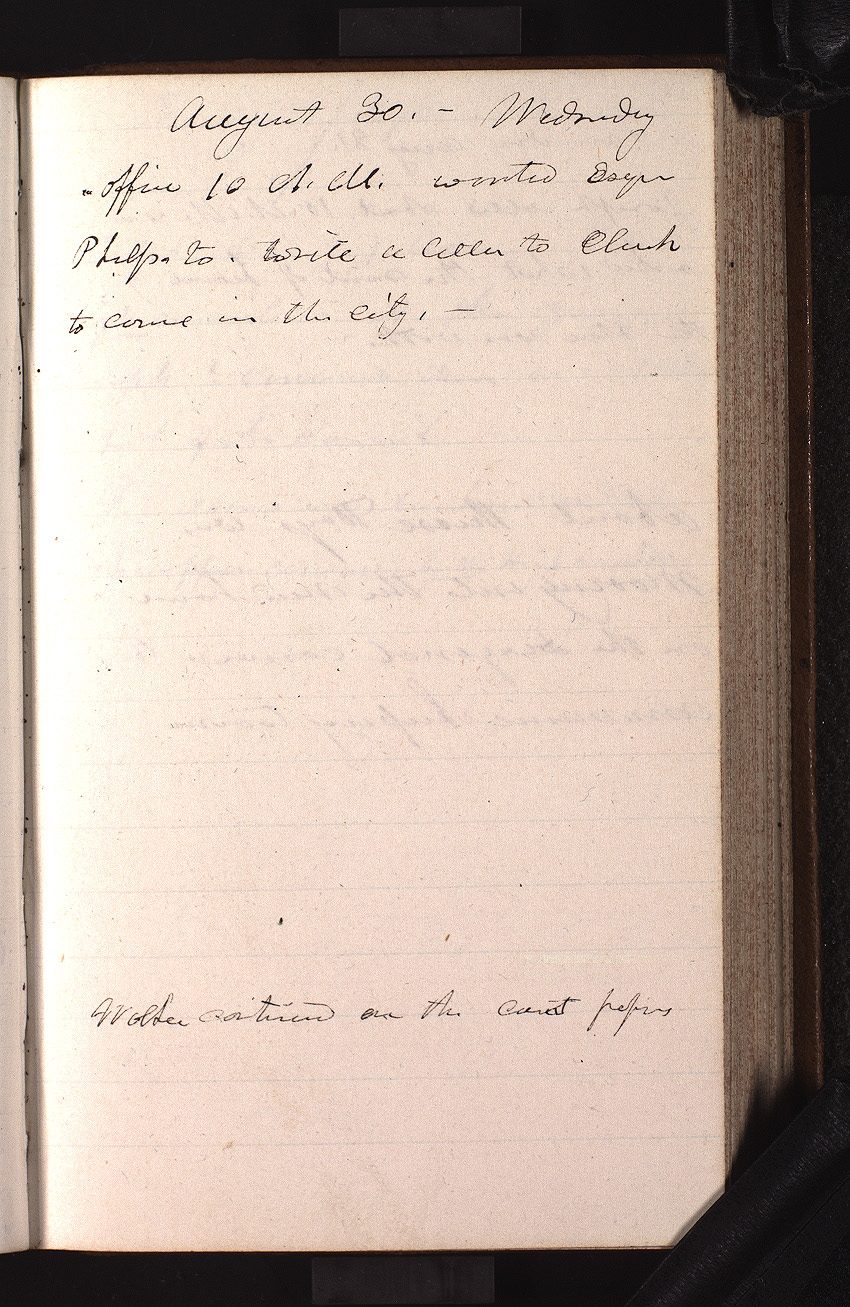 August 30. - Wednesday
Office 10 A.M. wanted Esqr
Phelps to. write a letter to Church
to come in the city, -
Walter continued on the court papers